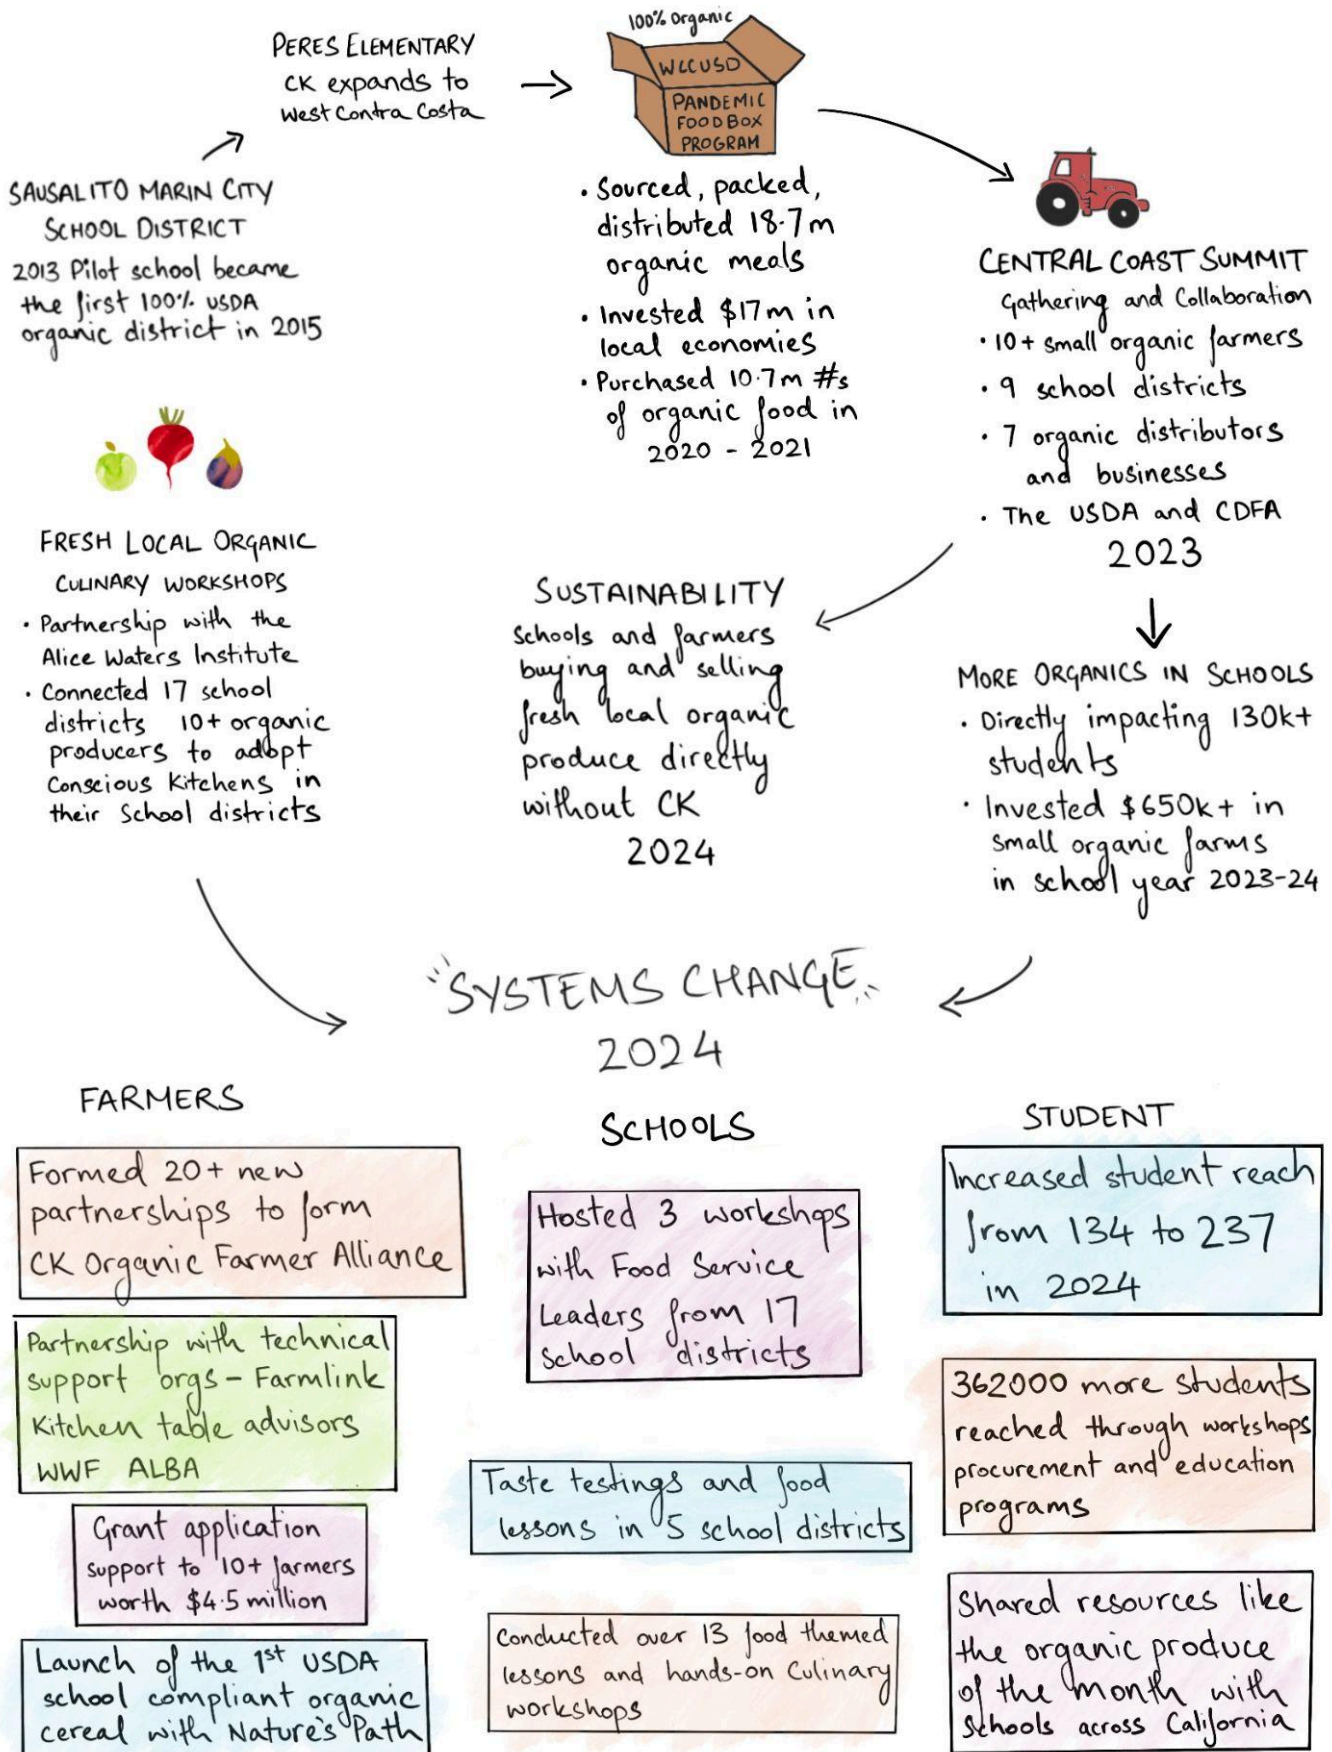 SAUSALITO MARIN CITY
SCHOOL DISTRICT
2013 Pilot school became
the first 100% USDA
organic district in 2015
PERES ELEMENTARY
CK expands to
West Contra Costa
100% Organic
WCCUSD
PANDEMIC
FOOD BOX
PROGRAM
• Sourced, packed,
distributed 18.7m
organic meals
• Invested $17m in
local economies
• Purchased 10.7m #s
of organic food in
2020 - 2021
CENTRAL COAST SUMMIT
Gathering and Collaboration
• 10+ small organic farmers
• 9 school districts
• 7 organic distributors
and businesses
• The USDA and CDFA
2023
SUSTAINABILITY
Schools and farmers
buying and selling
fresh local organic
produce directly
without CK
2024
MORE ORGANICS IN SCHOOLS
• Directly impacting 130k+
students
• Invested $650k+ in
small organic farms
in school year 2023-24
FRESH LOCAL ORGANIC
CULINARY WORKSHOPS
• Partnership with the
Alice Waters Institute
• Connected 17 school
districts 10+ organic
producers to adopt
Conscious Kitchens in
their School districts
SYSTEMS CHANGE
2024
FARMERS
Formed 20+ new
partnerships to form
CK Organic Farmer Alliance
Partnership with technical
support orgs - Farmlink
Kitchen table advisors
WWF ALBA
Grant application
support to 10+ farmers
worth $4.5 million
Launch of the 1st USDA
school compliant organic
cereal with Nature's Path
SCHOOLS
Hosted 3 workshops
with Food Service
Leaders from 17
school districts
Taste testings and food
lessons in 5 school districts
Conducted over 13 food themed
lessons and hands-on Culinary
workshops
STUDENT
Increased student reach
from 134 to 237
in 2024
362000 more students
reached through workshops
procurement and education
programs
Shared resources like
the organic produce
of the month with
Schools across California